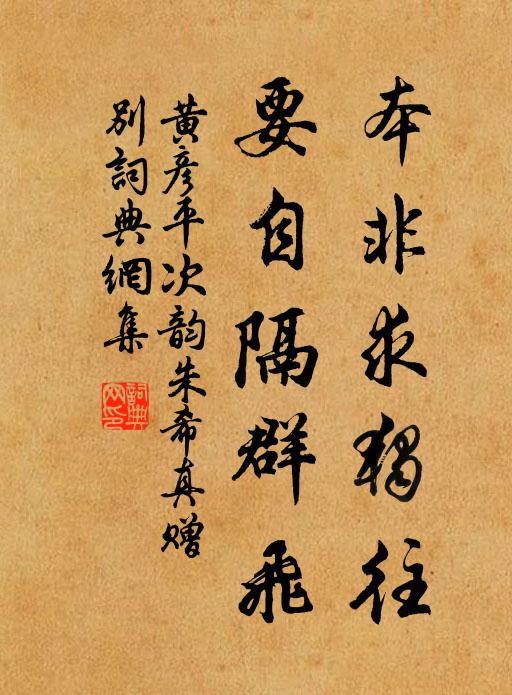 本非求獨往
要自隔群飛
黃彥平次韵朱希真贈
別詞典網集
詞典
网印